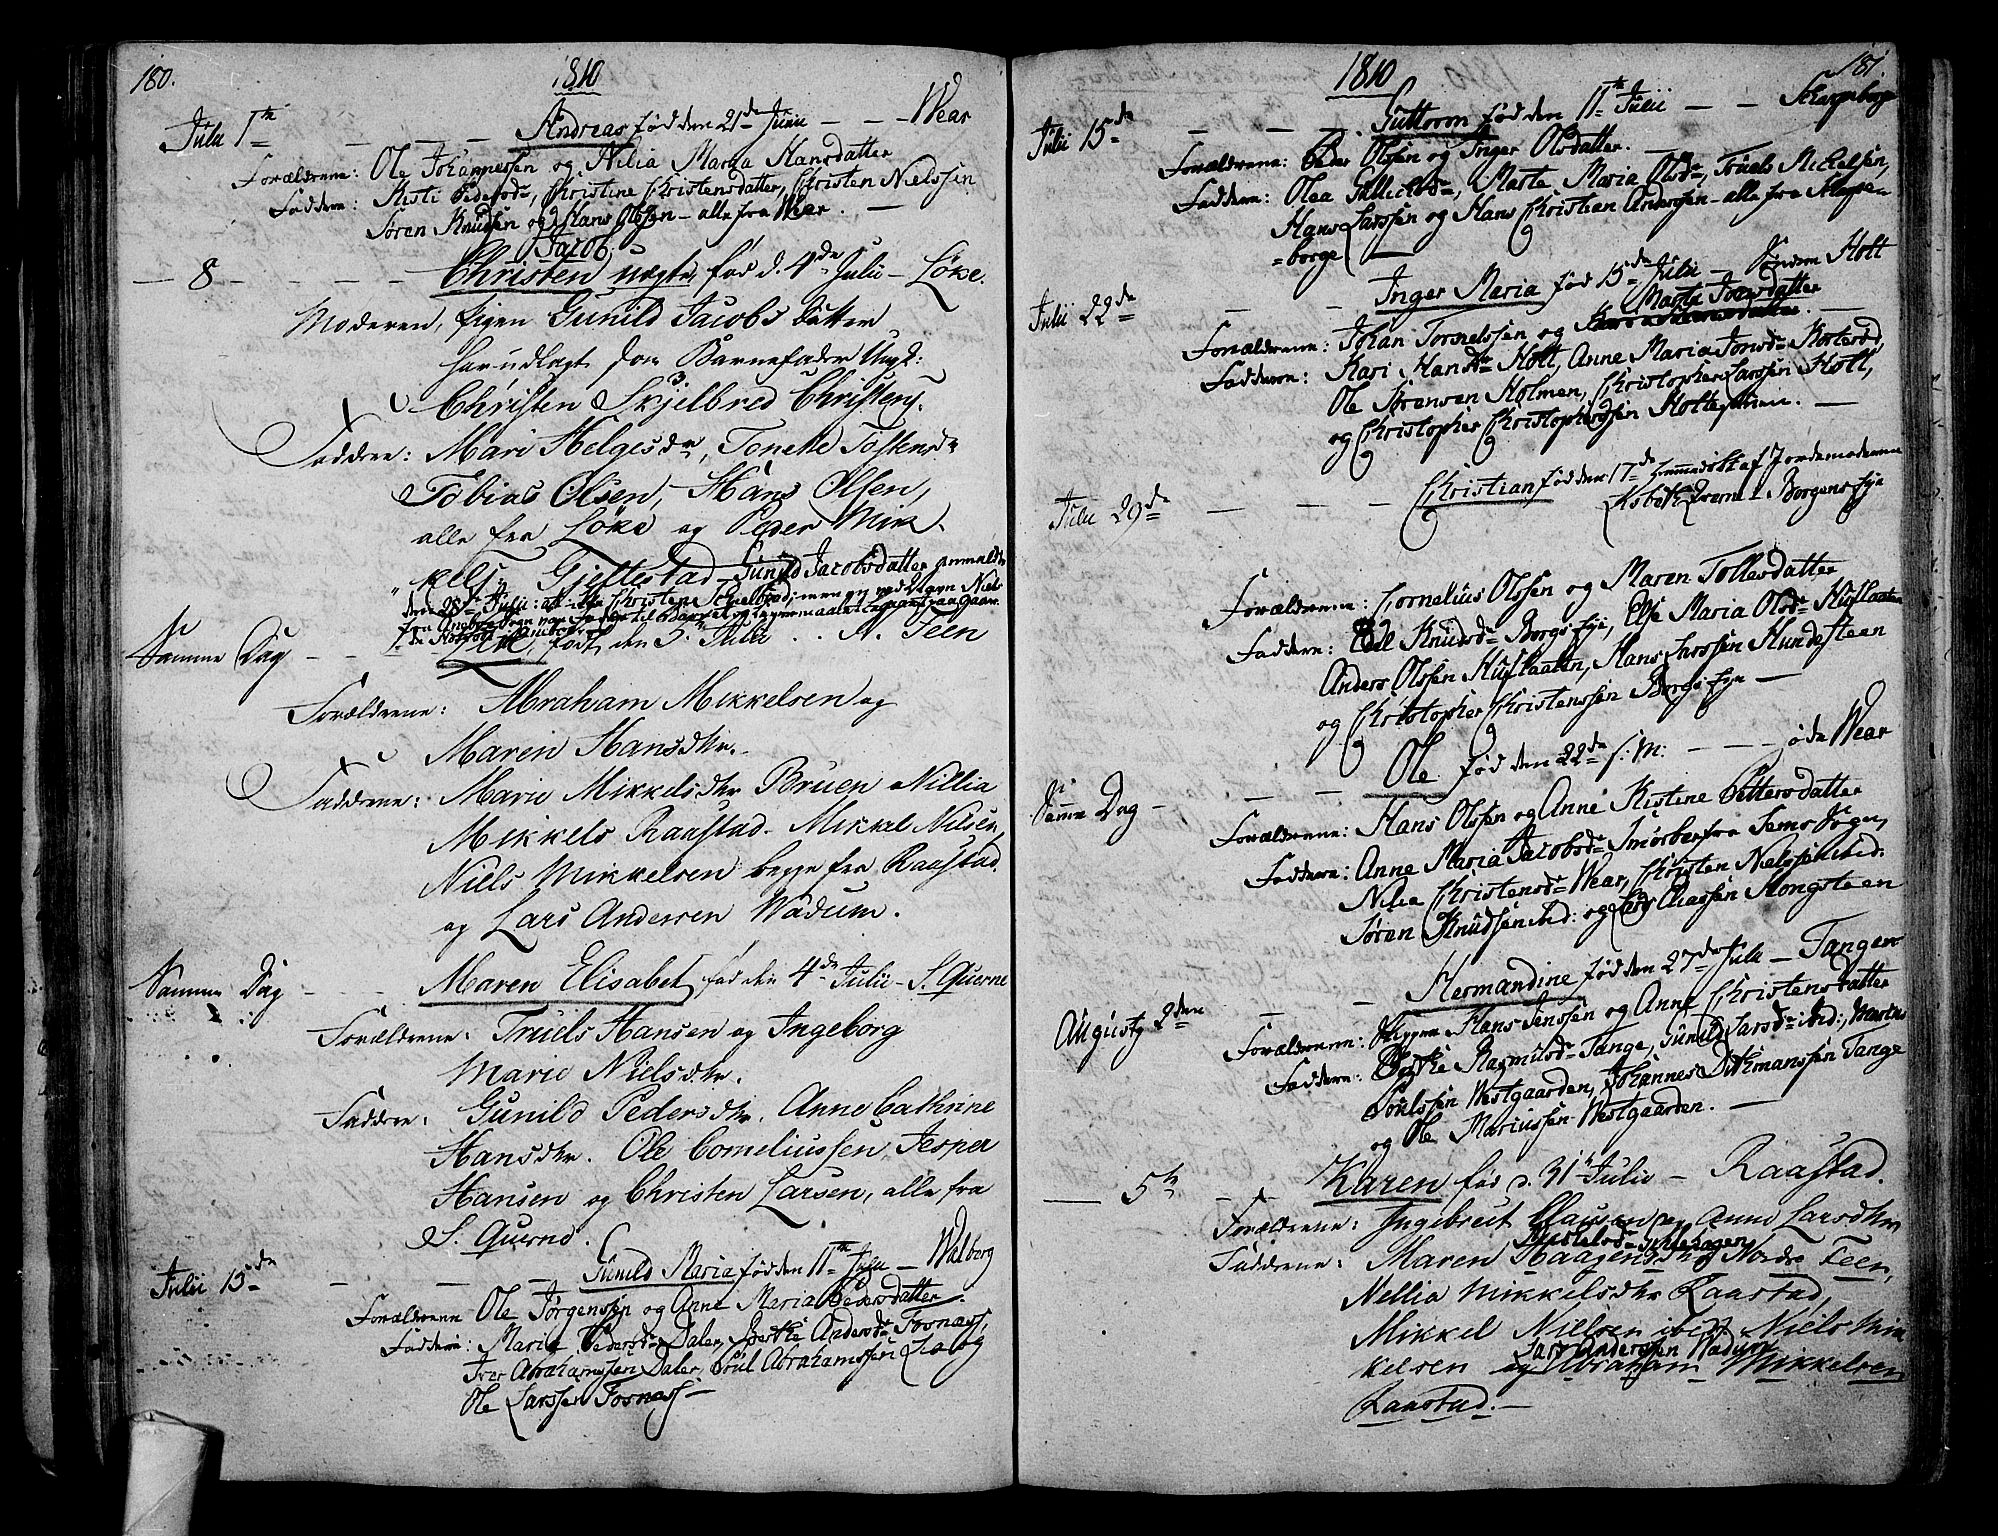 180.
1810
Julii 1te — Andreas født den 21de Junii — Wear
Forældrene: Ole Johannessen og Nilia Maria Hansdatter
Faddere: Kisti Pedersd., Christine Christensdatter, Christen Nielssen
Søren Knudsen og Hans Olssen – alle fra Wear.
Jacob
— 8 — Christen uægte, fød d. 4de Julii – Løke.
Moderen, Pigen Gunild Jacobs datter
har udlagt som Barnefader Ungk:
Christen Skjelbred Christens.
Faddere: Mari Helgesdr, Toneke Tostensdr
Tobias Olsen, Hans Olsen,
alle fra Løke og Peder Mik
kels: Gjeltestad Gunild Jacobsdatter anmeldte
den 28de Julii: at ikke Christen Schelbred, men
Samme Dag — født den 5te Julii .. N. Teen
Forældrene: Abraham Mikkelsen og
Maren Hansdtr.
Faddrene: Marie Mikkelsdtr Bruen Nillia
Mikkels Raastad. Mikkel Nilsen,
Niels Mikkelsen begge fra Raastad.
og Lars Andersen Wadum.
Samme Dag — Maren Elisabet, fød den 4de Julii – S. Querne
Forældrene: Truels Hansen og Ingeborg
Marie Nielsdtr.
Faddere: Gunild Pedersdtr. Anne Cathrine
Hansdtr. Ole Corneliussen, Jesper
Hansen og Christen Larsen, alle fra
S. Querne.
Julii 15de — Gunild Maria fød den 11te Julii — Walborg
Forældrene Ole Jørgensen og Anne Maria Pedersdatter
Faddere: Maria Pedersd. Daler, Andersd. Fosnæss,
Iver Abrahamssen Daler, Poul Abrahamssen og
Ole Larssen Fosnæss —
181.
1810
Julii 15de — Guttorm fød den 11te Julii — Scharpeborge
Forældrene: Peder Olssen og Inger Olsdatter.
Faddere: Olea Gullichsd., Marte Maria Olsd., Truels Michelsen,
Hans Larssen og Hans Christian Anderssen – alle fra Scharpe=
=borge
Julii 22de — Inger Maria fød 15de Julii — Søndern Holt
Marta Jonsdatter
Forældrene: Johan Tormelssen og
Faddere: Kari Hansdtr Holt, Anne Maria Jonsd.
Ole Sørensen Holmen, Christopher Larssen Holt,
og Christopher Christophersen Holteseien.
Julii 29de — Christian fød den 17de hjemmedøbt af Jordemoderen
Lisbeth — Borgens Eje
Forældrene: Cornelius Olssen og Maren Tollefsdatter
Faddere: Edel Knudsd. Borgs Eje, Else Maria Olsd. Huslaatten
Anders Olssen Huslaatten, Hans Larssen Hundesteen
og Christopher Christenssen Borgs Eje —
Samme Dag — Ole fød den 22de s: M: — øde Wear
Forældrene: Hans Olssen og Anne Kistine Pettersdatter
Faddere: Anne Maria Jacobsd. Smørberg fra Sems Sogn,
Nilia Christensd. Wear, Christen Nielssen ibid:
Søren Knudssen ibid: og Lars Classen Hongsteen
Augusty 2den — Hermandine fød den 27de Juli — Tangen
Forældrene: Hans Jenssen og Anne Christensdatter
Faddere: Rasmusd. Tange, Gunild Larsd. ibid:,
Poulssen Westgaarden, Johannes Ditkmanssen Tange
og Ole Mariussen Westgaarden. —
— 5te — Karen fød d. 31te Julii — Raastad.
Forældrene: Ingebret Clausen og Anne Larsdtr
Faddrene: Maren Haagensdtr Nordre Teen,
Nellia Mikkelsdtr Raastad,
Mikkel Nielsen ibid. Niels Mik
Lars Anderssen Wadum
kelsen og Abraham Mikkelsen
Raastad. —